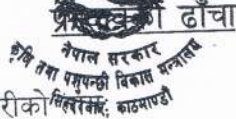 ढाँचा
नेपाल सरकार
कृषि तथा पशुपन्छी विकास मन्त्रालय
रीको सिंहदरबार, काठमाण्डौ